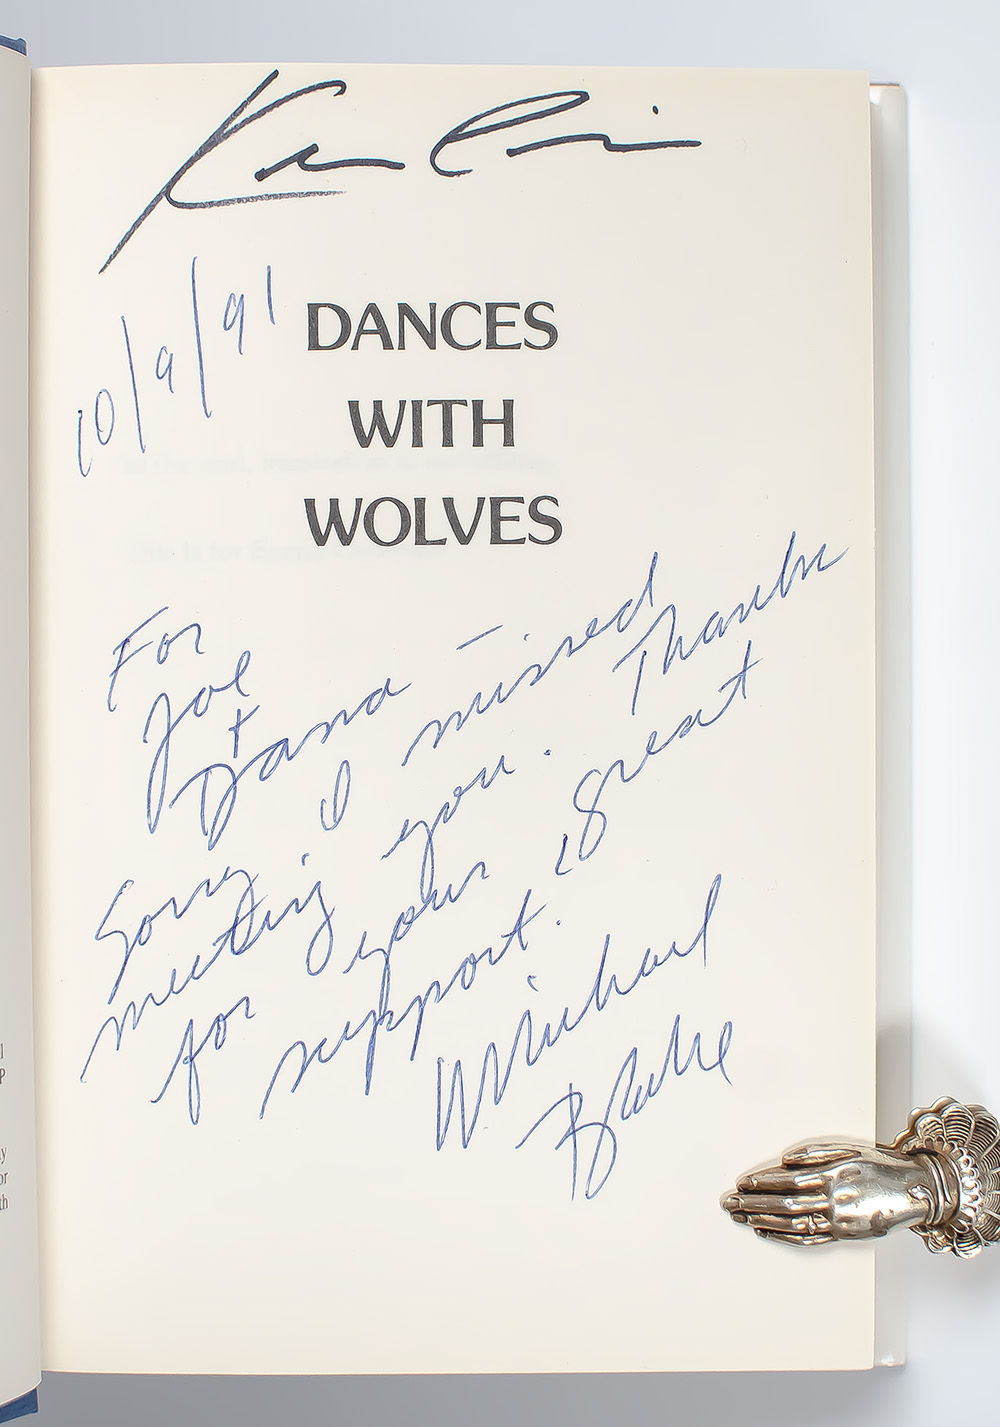 10/9/91
DANCES
WITH
WOLVES
For
Joe
+
Dana —
Sorry I missed
meeting you. Thanks
for your great
support.
Michael
Blake
l
P
y
or
th